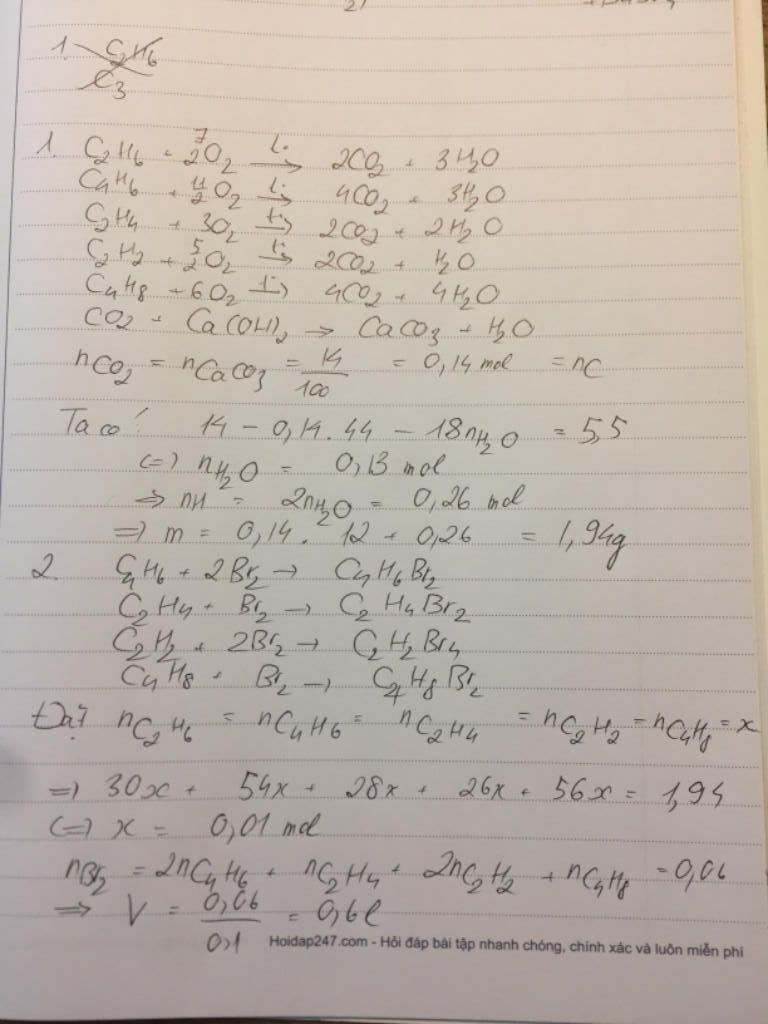 2)
1. C2H6
C3
1. C2H6 + 7/2 O2 t° → 2CO2 + 3H2O
C4H6 + 11/2 O2 t° → 4CO2 + 3H2O
C2H4 + 3O2 t° → 2CO2 + 2H2O
C2H2 + 5/2 O2 t° → 2CO2 + H2O
C4H8 + 6O2 t° → 4CO2 + 4H2O
CO2 + Ca(OH)2 → CaCO3 + H2O
nCO2 = nCaCO3 = 14/100 = 0,14 mol = nC
Ta có: 14 - 0,14.44 - 18nH2O = 5,5
(=) nH2O = 0,13 mol
=> nH = 2nH2O = 0,26 mol
=> m = 0,14. 12 + 0,26 = 1,94g
2. C4H6 + 2Br2 → C4H6Br2
C2H4 + Br2 → C2H4Br2
C2H2 + 2Br2 → C2H2Br4
C4H8 + Br2 → C4H8Br2
Đặt nC2H6 = nC4H6 = nC2H4 = nC2H2 = nC4H8 = x
=) 30x + 54x + 28x + 26x + 56x = 1,94
(=) x = 0,01 mol
nBr2 = 2nC4H6 + nC2H4 + 2nC2H2 + nC4H8 = 0,06
=> V = 0,06/0,1 = 0,6l
Hoidap247.com - Hỏi đáp bài tập nhanh chóng, chính xác và luôn miễn phí